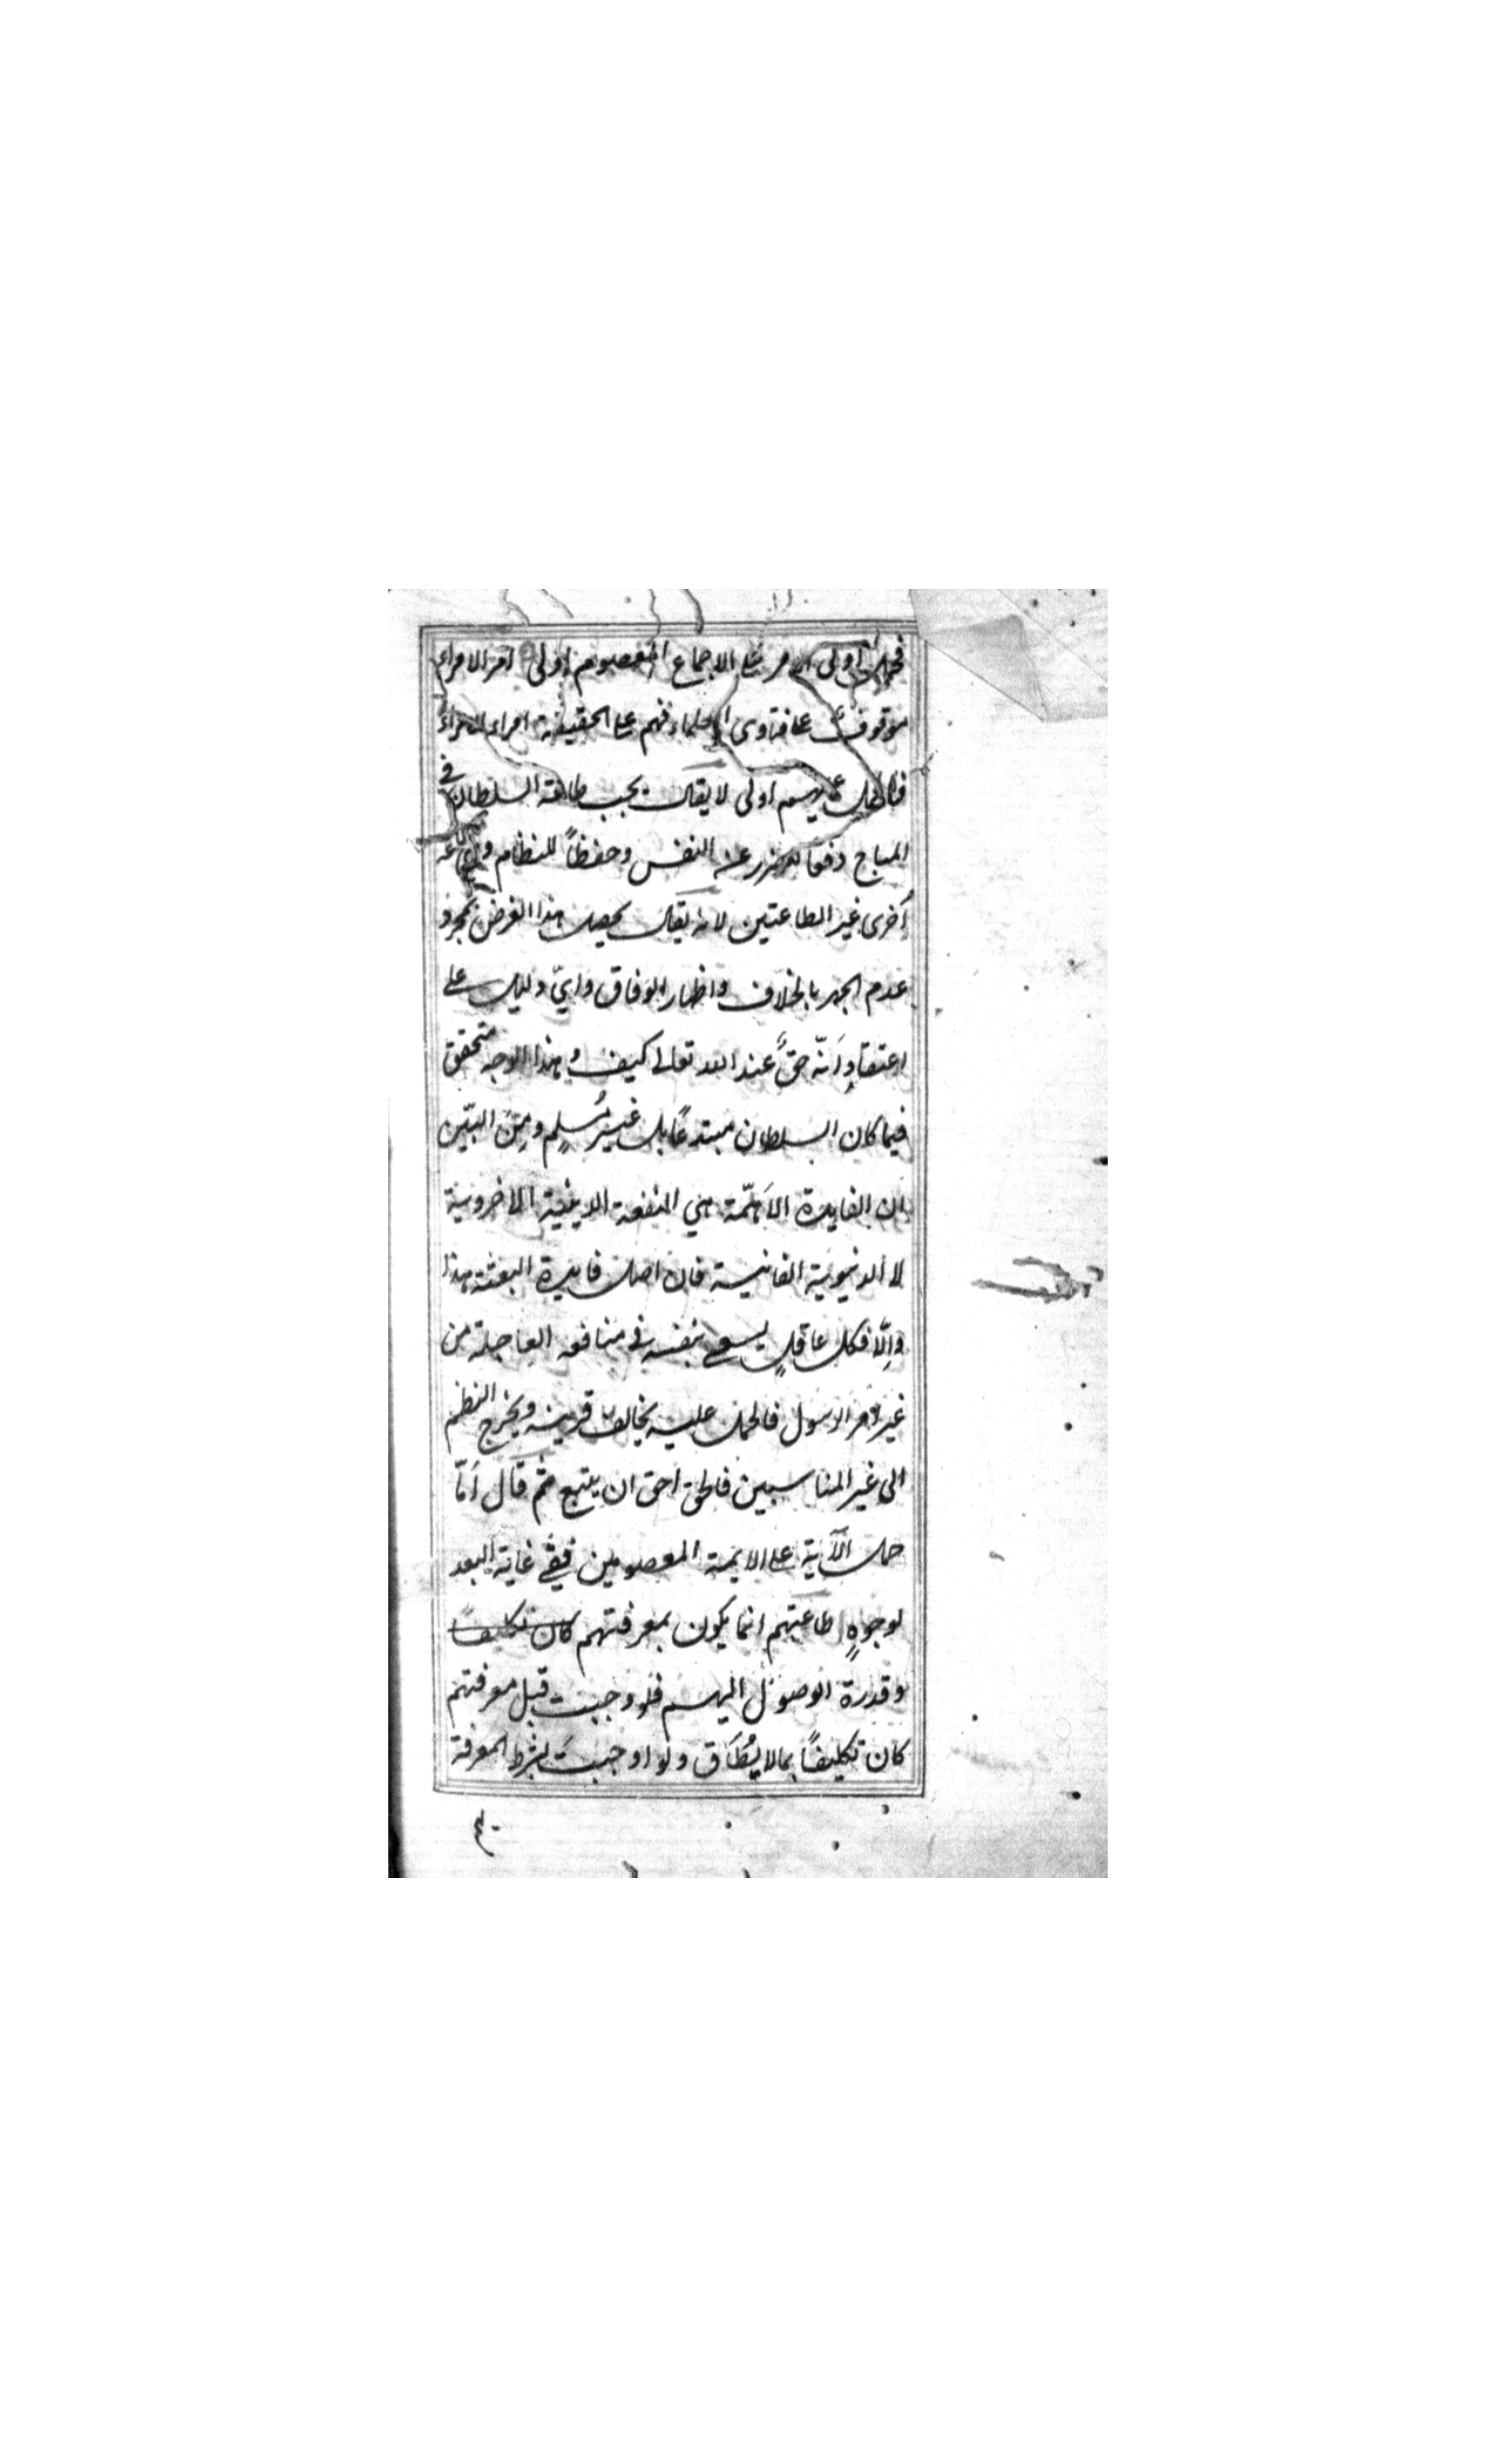 فحمل اولى الامر على الاجماع المعصوم اولى امر الامراء
موقوف على فتاوى العلماء فهم على الحقيقة امراء الامراء
فالحمل عليهم اولى لا يقال يجب طاعة السلطان في
المباح دفعًا للضرر عن النفس وحفظاً للنظام
أخرى غير الطاعتين لانه يقال يحصل هذا الغرض بمجرد
عدم الجهر بالخلاف واظهار الوفاق وايّ دليل على
اعتقادِ اَنّه حقٌّ عند الله تعالى كيف وهذا الوجه متحقق
فيما كان السلطان مبتدعًا بل غير مُسلِمٍ ومِنَ البيّن
ان الفايدة الاَهَمّة هي المنفعة الدينية الاخروية
لا الدنيوية الفانية فان اصل فايدة البعثة هذا
واِلّا فكل عاقلٍ يسعى بنفسه في منافعه العاجلة من
غير امر الرسول فالحمل عليه يخالف قرينه ويخرج النظم
الى غير المناسبين فالحق احق ان يتبع ثم قال اَمّا
حمل الآية على الايمة المعصومين ففي غاية البعد
لوجوهٍ اطاعتهم انما يكون بمعرفتهم كان تكليفًا
وقدرة الوصول اليهم فلو وجبت قبل معرفتهم
كان تكليفًا بمالا يُطَاق ولو اوجبتَ بشرط المعرفة